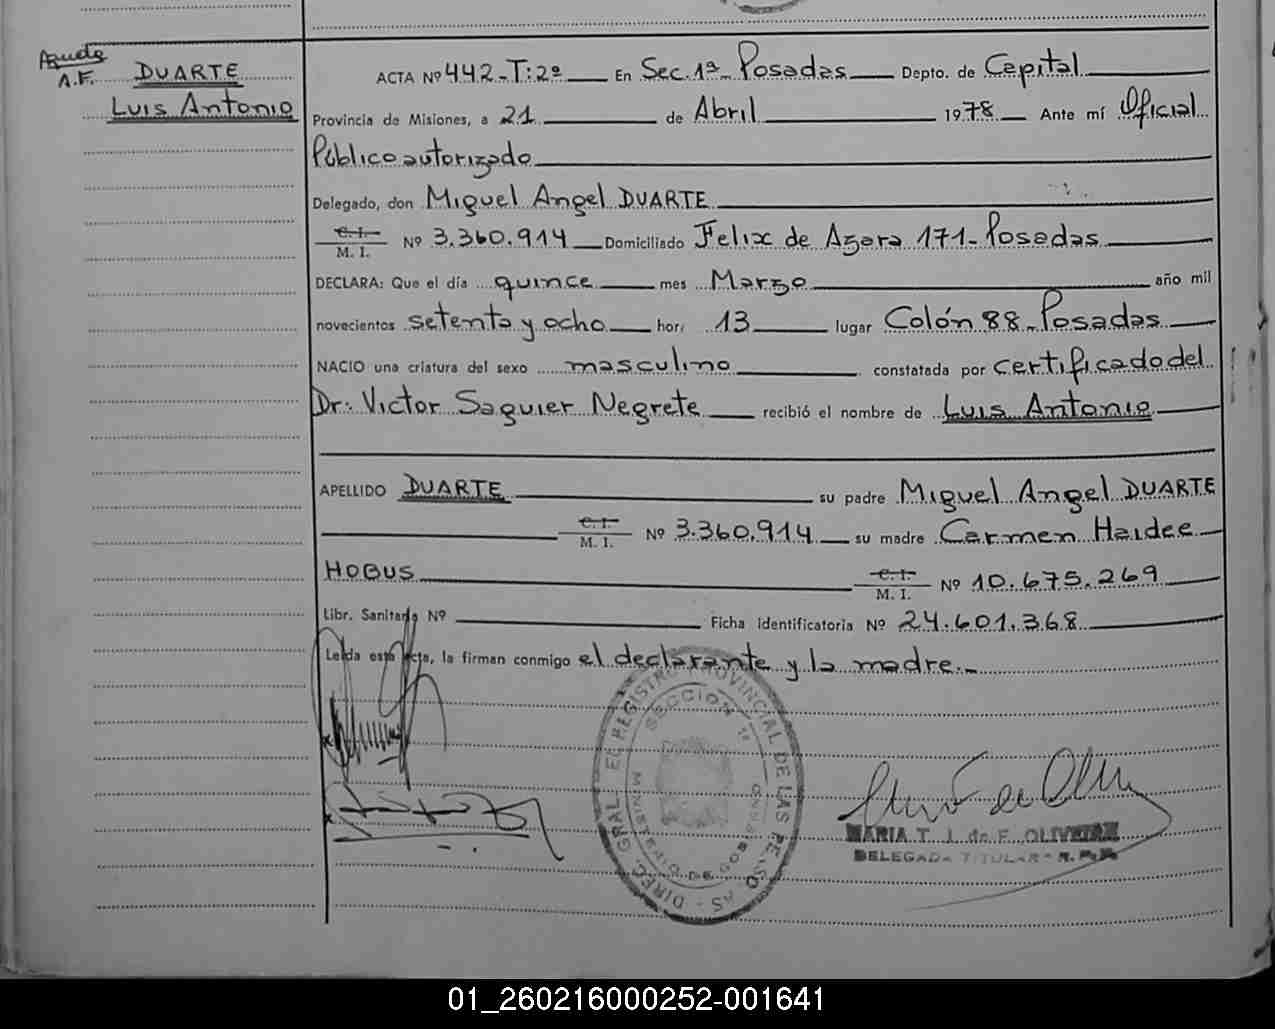 Agudo
A.F. DUARTE
Luis Antonio
ACTA Nº 442-T:2º En Sec. 1ª Posadas Depto. de Capital
Provincia de Misiones, a 21 de Abril 1978 Ante mí Oficial
Público autorizado
Delegado, don Miguel Angel DUARTE
C.I. M.I. Nº 3.360.914 Domiciliado Felix de Azara 171-Posadas
DECLARA: Que el día quince mes Marzo año mil
novecientos setenta y ocho hora 13 lugar Colón 88-Posadas
NACIO una criatura del sexo masculino constatada por certificado del
Dr. Victor Saguier Negrete recibió el nombre de Luis Antonio
APELLIDO DUARTE su padre Miguel Angel DUARTE
C.I. M.I. Nº 3.360.914 su madre Carmen Haidee
HOBUS C.I. M.I. Nº 10.675.269
Libr. Sanitaria Nº Ficha identificatoria Nº 24.601.368
Leída esta acta, la firman conmigo el declarante y la madre.-
DIREC. GRAL. REGISTRO PROVINCIAL DE LAS PERSONAS
SECCION 1ª
MINISTERIO DE GOBIERNO
MARIA T. J. de F. OLIVEIRA
DELEGADA TITULAR - R.P.P.
01_260216000252-001641